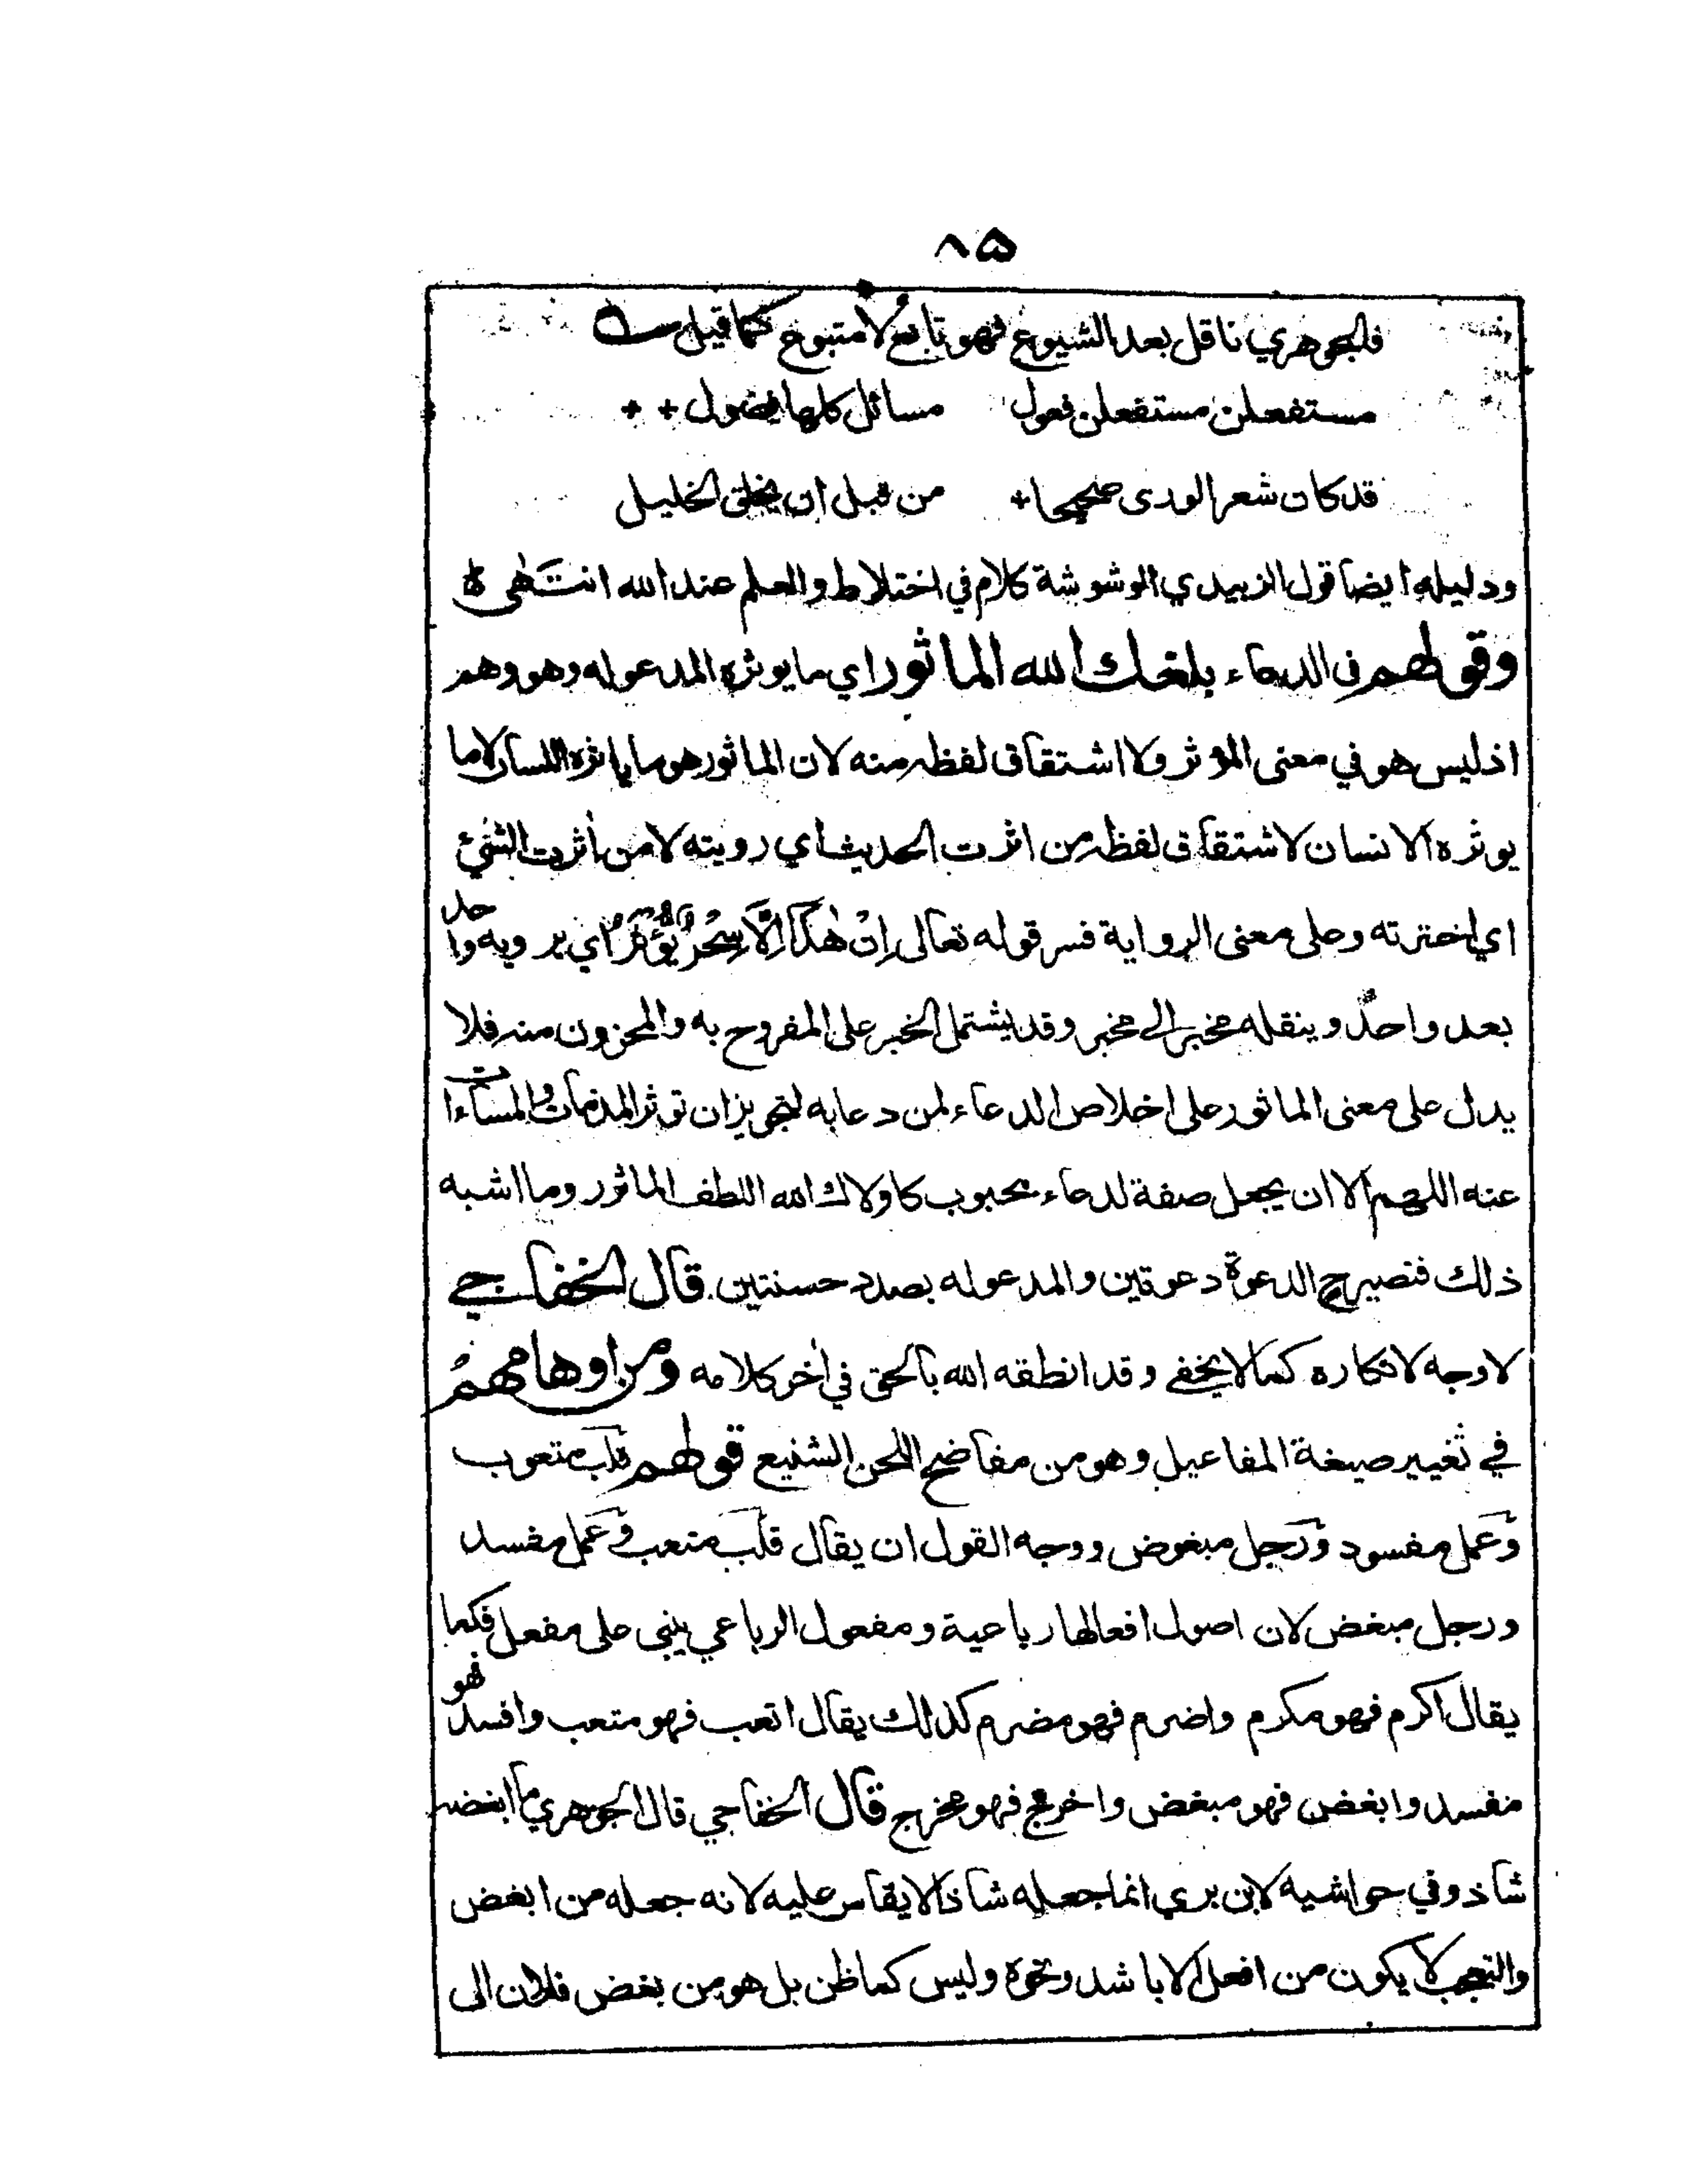 ٨٥
فالجوهري ناقل بعد الشيوع فهو تابع لا متبوع كما قيل
مستفعلن مستفعلن فعول مسائل كلها فضول + +
قد كان شعر الورى صحيحا + من قبل ان يخلق الخليل
ودليله ايضا قول الزبيدي الوشوشة كلام في اختلاط والعلم عند الله انتهى ه
وقولهم في الدعاء بلغك الله الماثور اي ما يوثره المدعو له وهو وهم
اذ ليس هو في معنى المؤثر ولا اشتقاق لفظه منه لان الماثور هو ما ياثره اللسان لا ما
يوثره الانسان لاشتقاق لفظه من اثرت الحديث اي رويته لا من اٰثرت الشئ
اي اخترته وعلى معنى الرواية فسر قوله تعالى اِنْ هٰذَا اِلَّا سِحْرٌ يُّؤْثَرُ اي يرويه واحد
بعد واحد وينقله مخبر الى مخبر وقد يشتمل الخبر على المفروح به والمحزون منه فلا
يدل على معنى الماثور على اخلاص الدعاء لمن دعا به لتجويز ان توثر المذمات والمساءات
عنه اللهم الا ان يجعل صفة لدعاء محبوب كاولاك الله اللطف الماثور وما اشبه
ذلك فتصير ح الدعوة دعوتين والمدعو له بصدد حسنتين قال الخفاجي
لا وجه لانكاره كما لا يخفى وقد انطقه الله بالحق في اٰخر كلامه ومن اوهامهم
في تغيير صيغة المفاعيل وهو من مفاضح اللحن الشنيع قولهم قلب متعوب
وعمل مفسود ورجل مبغوض ووجه القول ان يقال قلب متعب وعمل مفسد
ورجل مبغض لان اصول افعالها رباعية ومفعول الرباعي يبنى على مفعل فكما
يقال اكرم فهو مكرم واضرم فهو مضرم كذلك يقال اتعب فهو متعب وافسد فهو
مفسد وابغض فهو مبغض واخرج فهو مخرج قال الخفاجي قال الجوهري ما ابغضه
شاذ وفي حواشيه لابن بري انما جعله شاذا لا يقاس عليه لانه جعله من ابغض
والتعجب لا يكون من افعل الا باشد ونحوه وليس كما ظن بل هو من بغض فلان الى